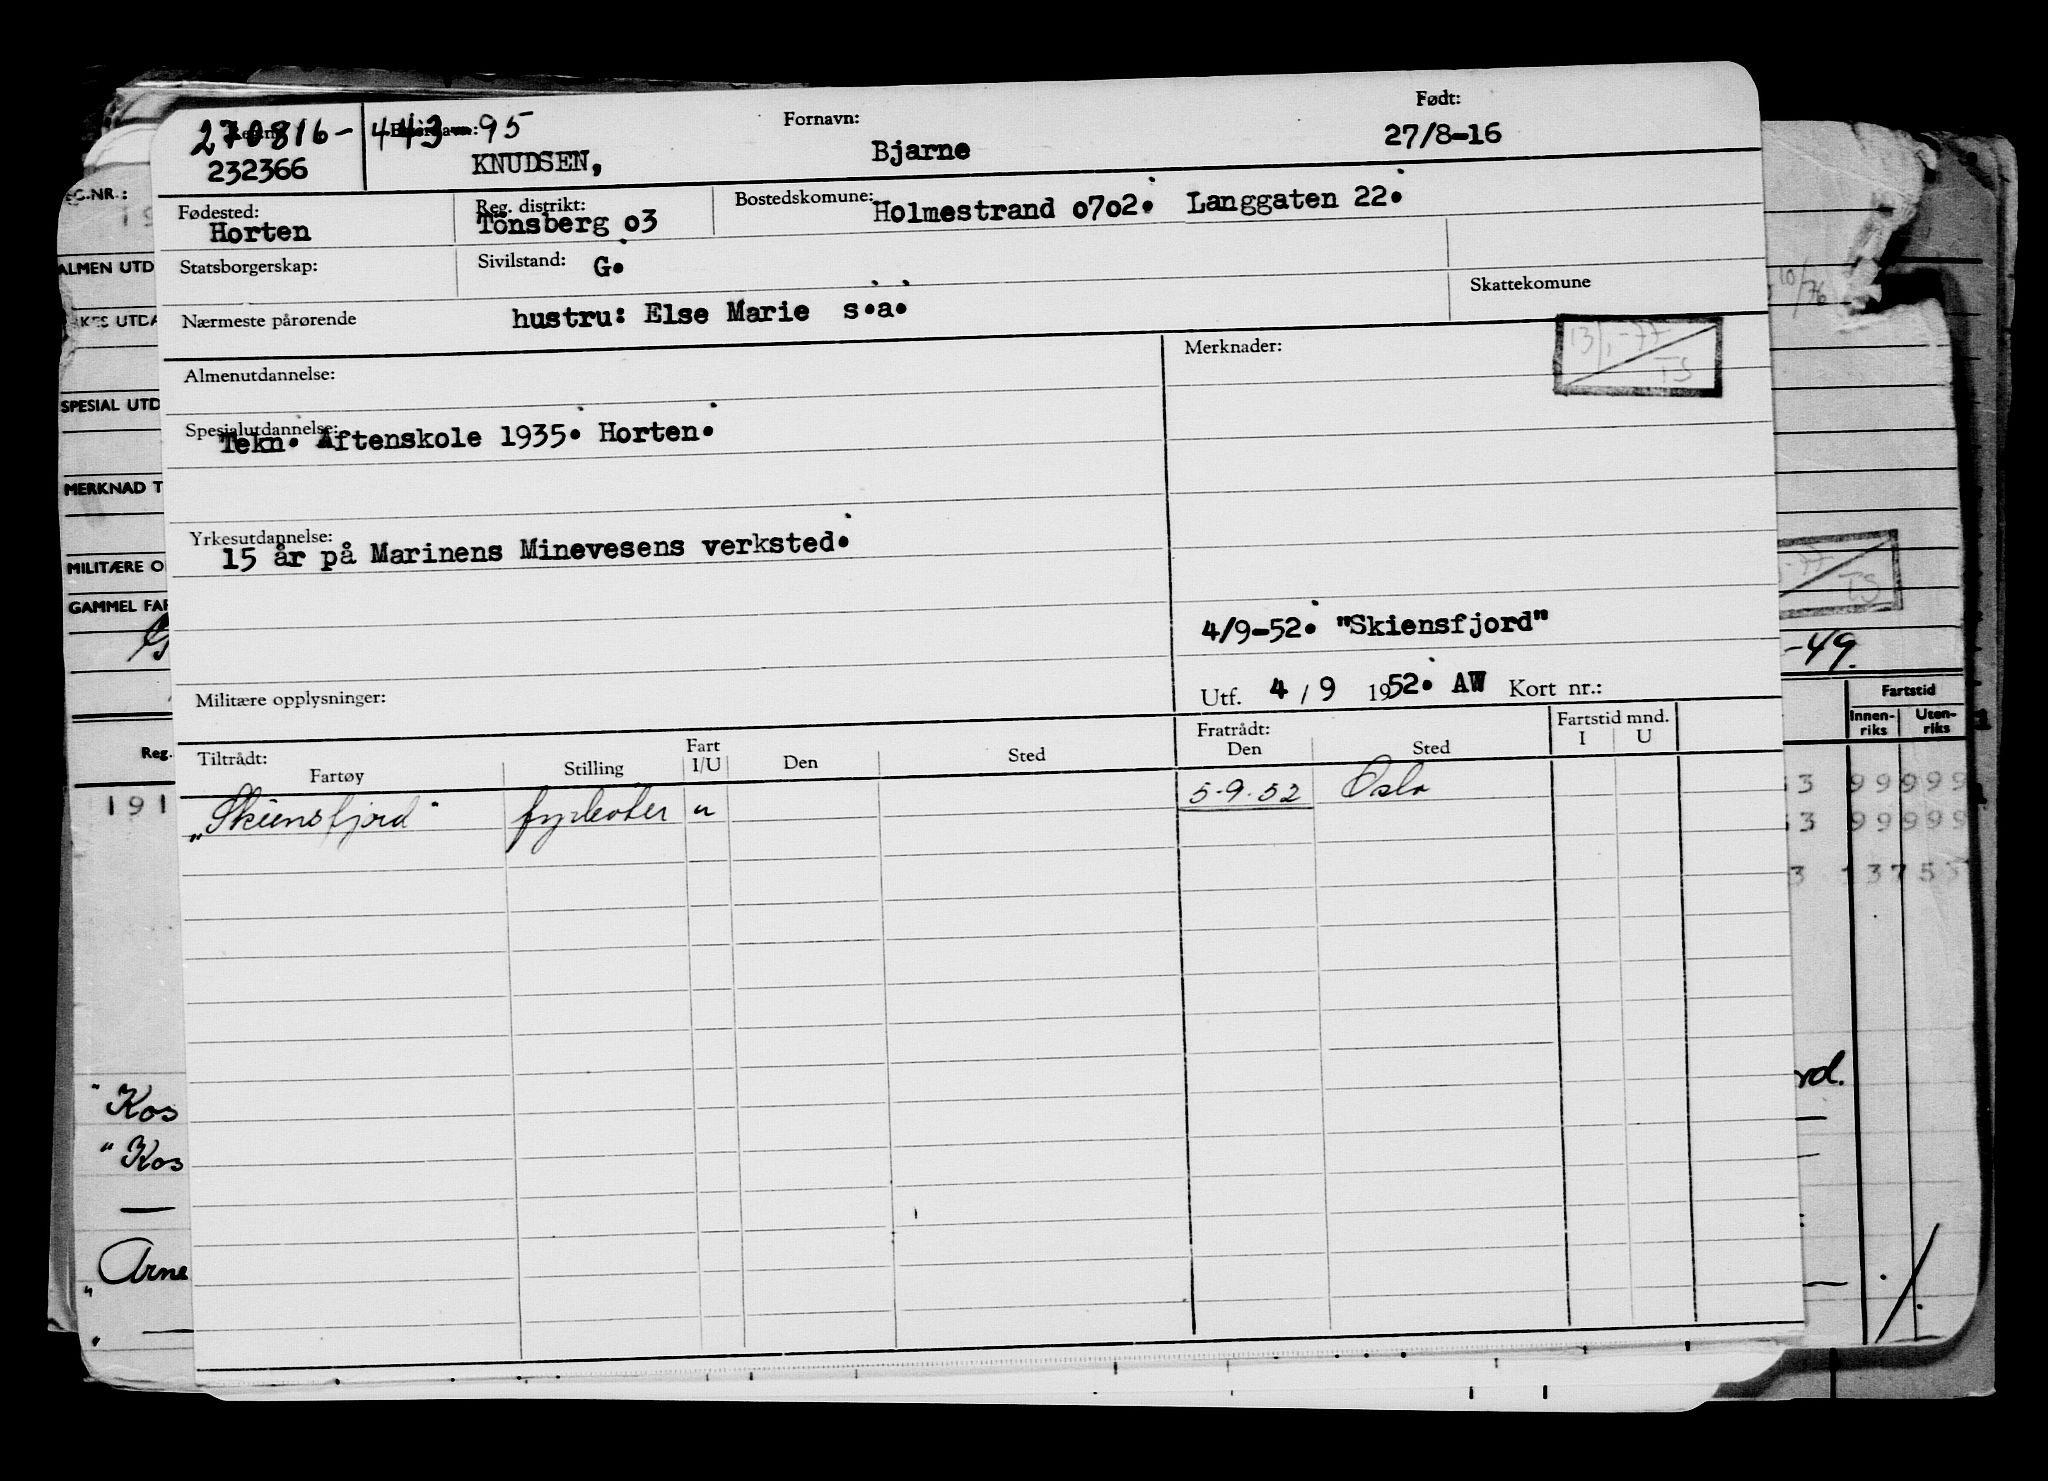 270816-44395
232366
KNUDSEN,
Fornavn:
Bjarne
Født:
27/8-16
Fødested:
Horten
Reg. distrikt:
Tönsberg o3
Bostedskomune:
Holmestrand o7o2. Langgaten 22.
Statsborgerskap:
Sivilstand: G.
Nærmeste pårørende
hustru: Else Marie s.a.
Skattekomune
Almenutdannelse:
Merknader:
13/1-77
TS
Spesialutdannelse:
Tekn. Aftenskole 1935. Horten.
Yrkesutdannelse:
15 år på Marinens Minevesens verksted.
4/9-52. "Skiensfjord"
Militære opplysninger:
Utf. 4 / 9 1952. AW Kort nr.:
Tiltrådt:
Fartøy
Stilling
Fart I/U
Den
Sted
Fratrådt:
Den
Sted
Fartstid mnd.
I U
"Skiensfjord" fyrbøter u 5-9-52 Oslo
G.NR.:
19
ALMEN UTD
KES UTDA
SPESIAL UTD
MERKNAD T
MILITÆRE O
GAMMEL FAR
Reg.
191
"Kos
"Kos
"Arne
10/76
-77
TS
-49.
Fartstid
Innen-
riks
Uten-
riks
3 99999
3 99999
3 13753
rd.